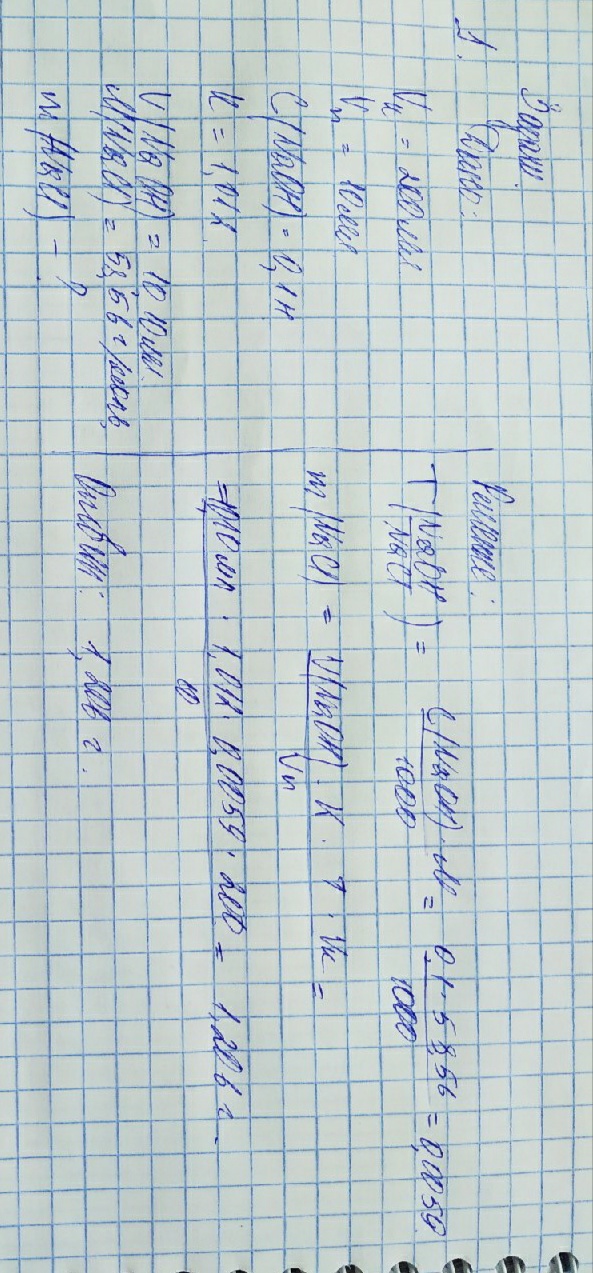 Задачи.
1.
Дано:
Vк = 200 мл
Vп = 10 мл
C(NaOH) = 0,1 н
K = 1,012
V(NaOH) = 10,10 мл.
M(NaCl) = 58,56 г/моль
m(NaCl) – ?
Решение:
T(NaOH/NaCl) = C(NaOH)·M/1000 = 0,1·58,56/1000 = 0,0059
m(NaCl) = V(NaOH)·K·T·Vк/Vп =
= 10,10 мл · 1,012 · 0,0059 · 200/10 = 1,206 г.
Ответ: 1,206 г.